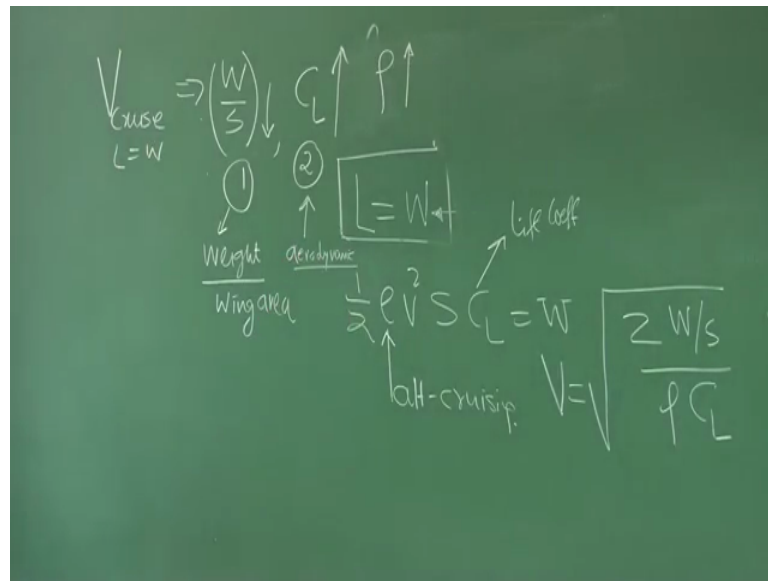 V cruise ⇒ (W/S)↓, C_L↑ ρ↑
L=W
① ②
L=W
Weight/Wing area
aerodynamic
Lift Coeff
1/2 ρ V² S C_L = W
alt-cruising.
V=√(2 W/S / ρ C_L)